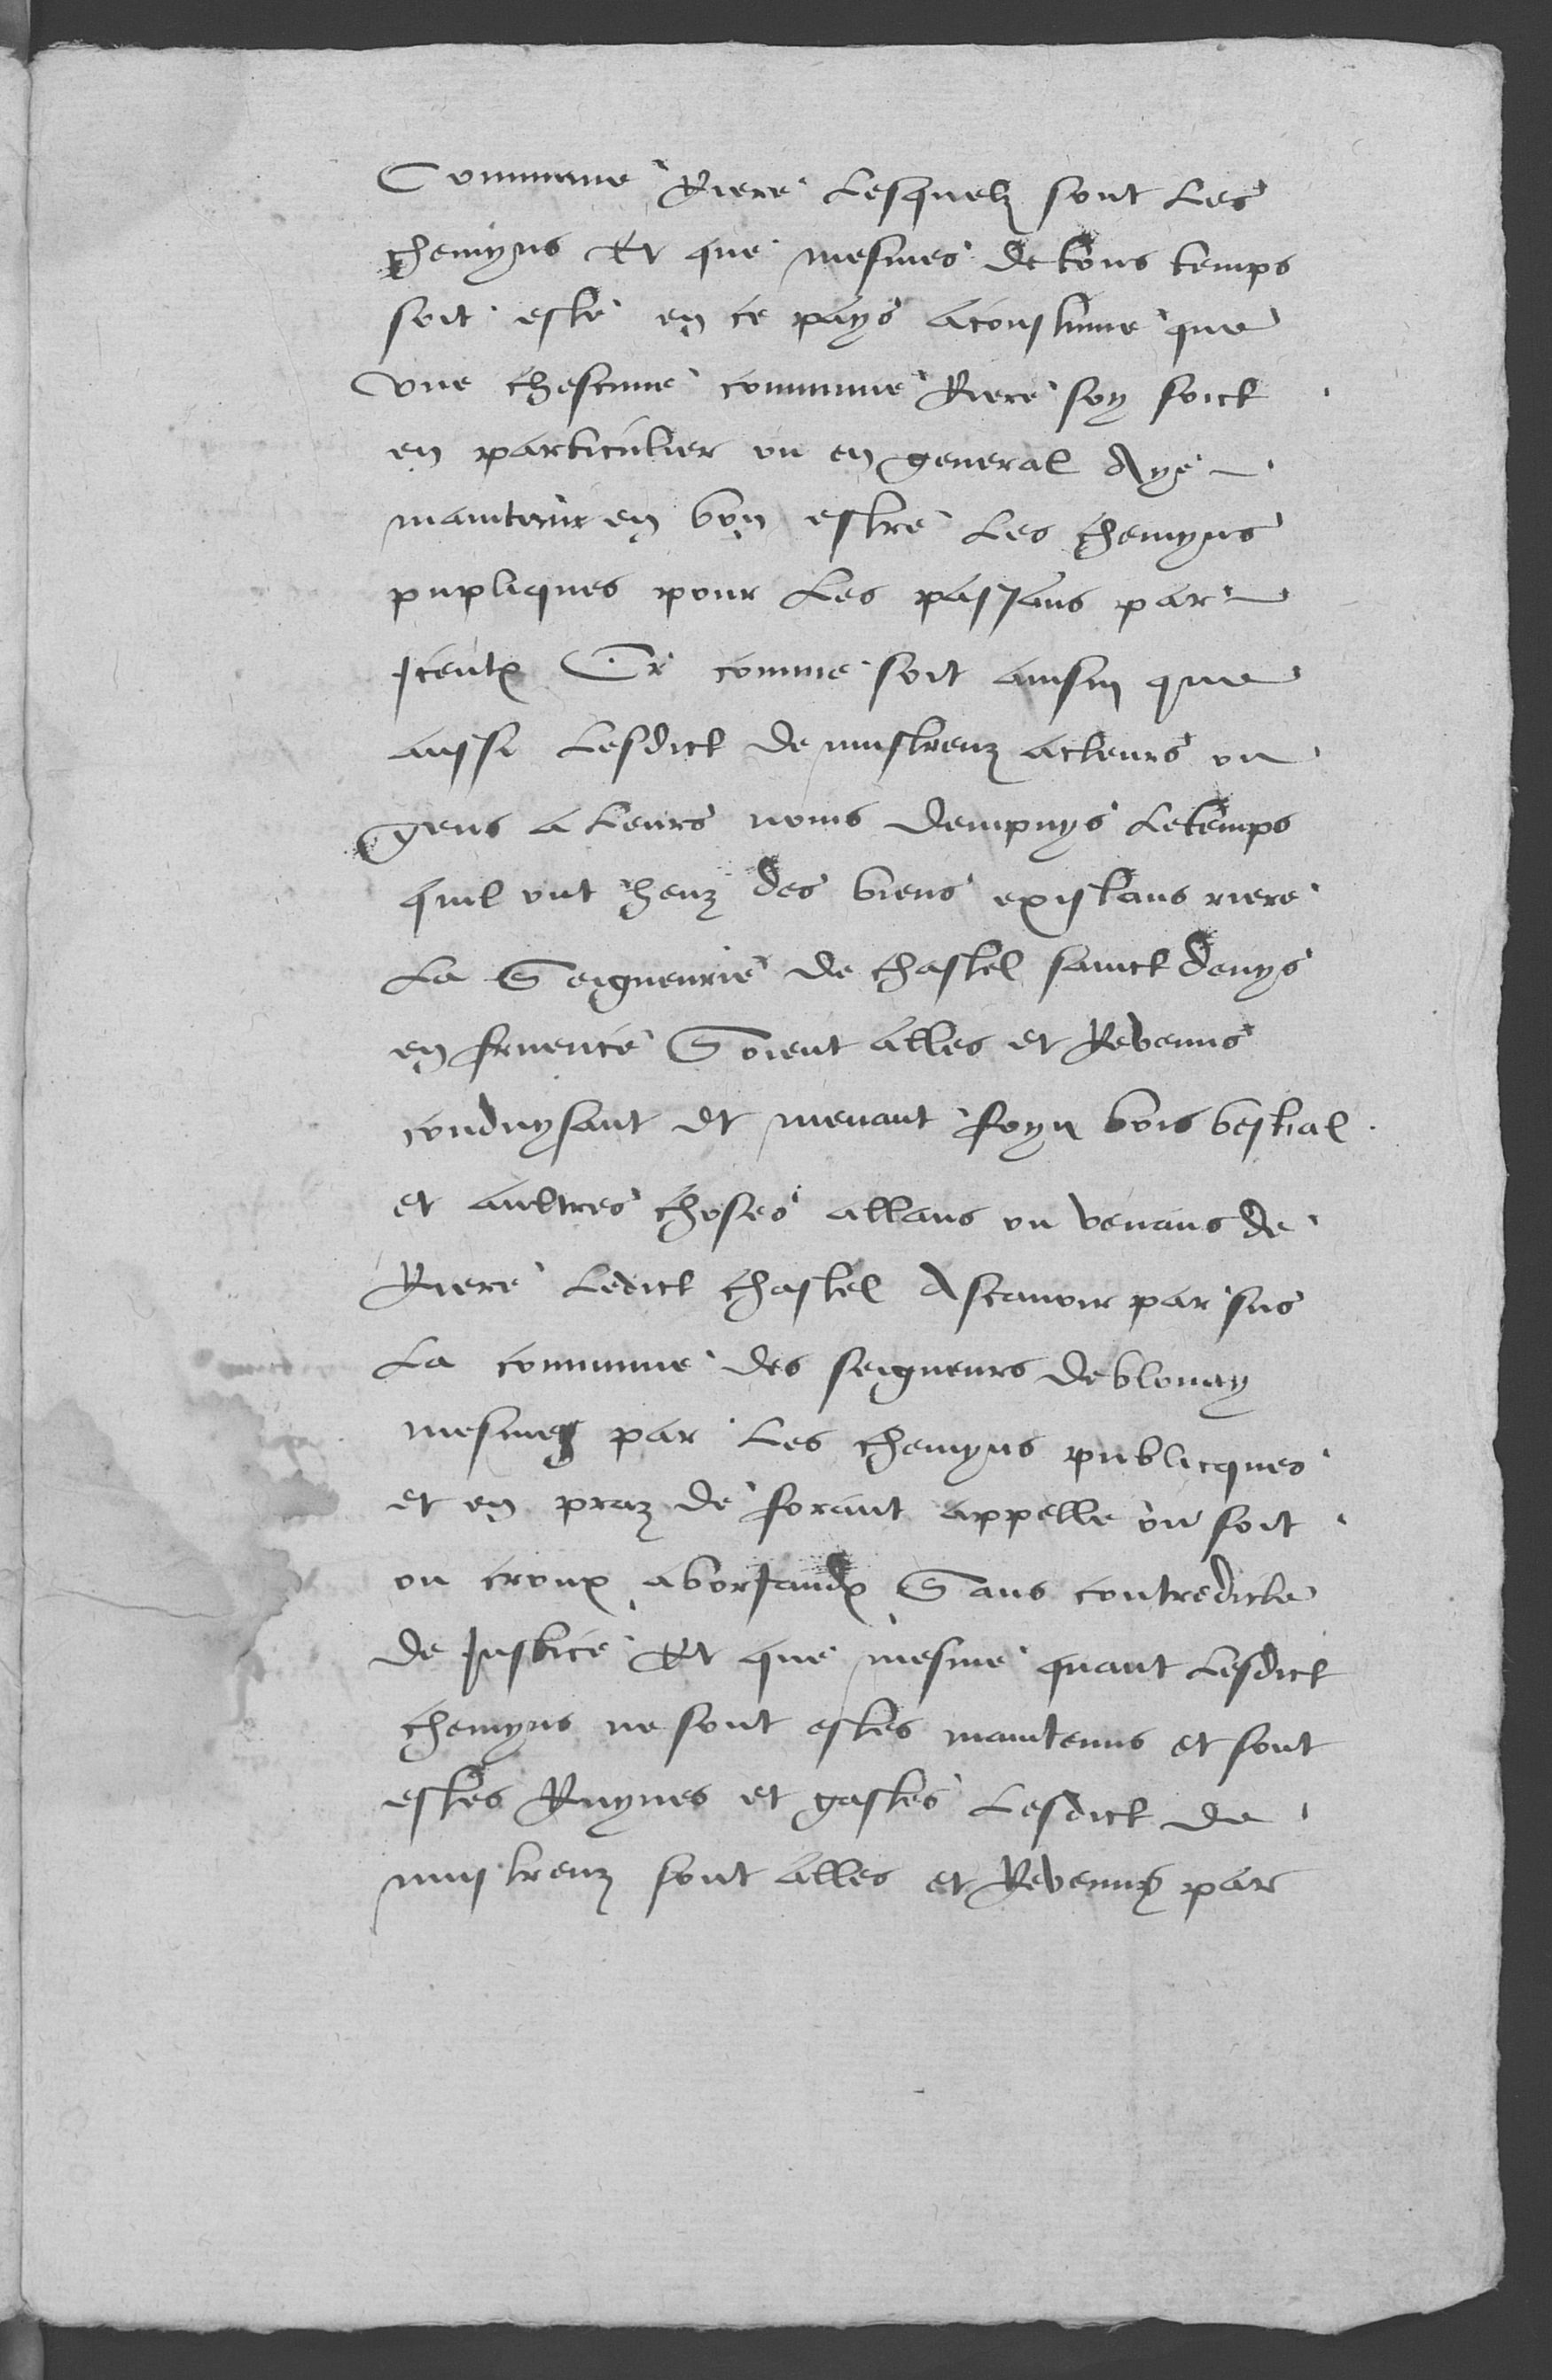 Commune Riere lesquelz sont les
chemyns Et que mesmes de tous temps
soit este en ce pays acoustume que
une chescune commune Riere soy soict
en particulier ou en general Aye
maintenir en bon estre les chemyns
pupliques pour les passans par
Iceulx Or comme soit ainsin que
aussi lesdict de mustreuz acteurs ou
gens a leurs noms dempuys le temps
quil ont heuz des biens existans riere
la Seigneurie de chastel sainct denys
en fruence Soient alles et Revenus
conduysant et menant foyn bois bestial
et aultres choses allans ou venans de
Riere ledict chastel Ascavoir par sus
la commune des seigneurs de blonay
mesmes par les chemyns publicques
et en praz de forant appelle ou soit
ou croux a borjaudx Sans contredicte
de Justice Et que mesme quant lesdict
chemyns ne sont estes maintenus et sont
estes Ruynes et gastes lesdict de
mustreuz sont alles et Revenus par